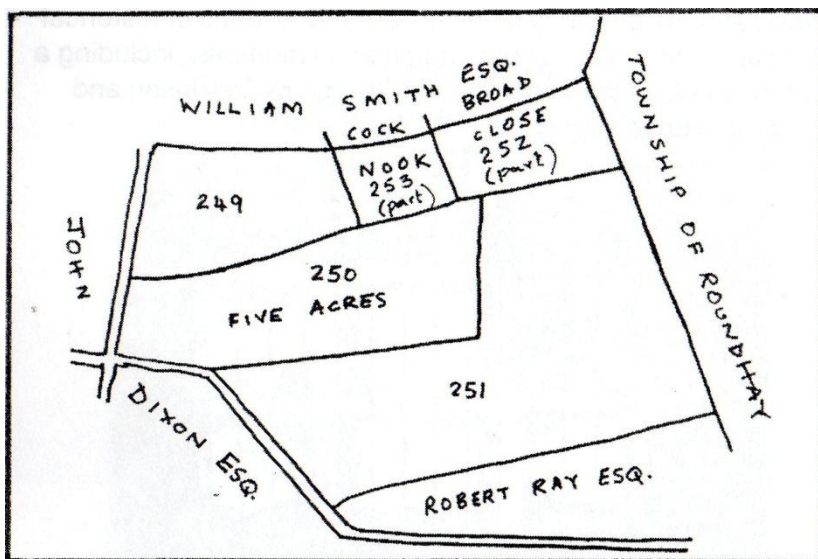 WILLIAM SMITH ESQ.
COCK NOOK
253
(part)
BROAD CLOSE
252
(part)
TOWNSHIP OF ROUNDHAY
249
JOHN DIXON ESQ.
250
FIVE ACRES
251
ROBERT RAY ESQ.